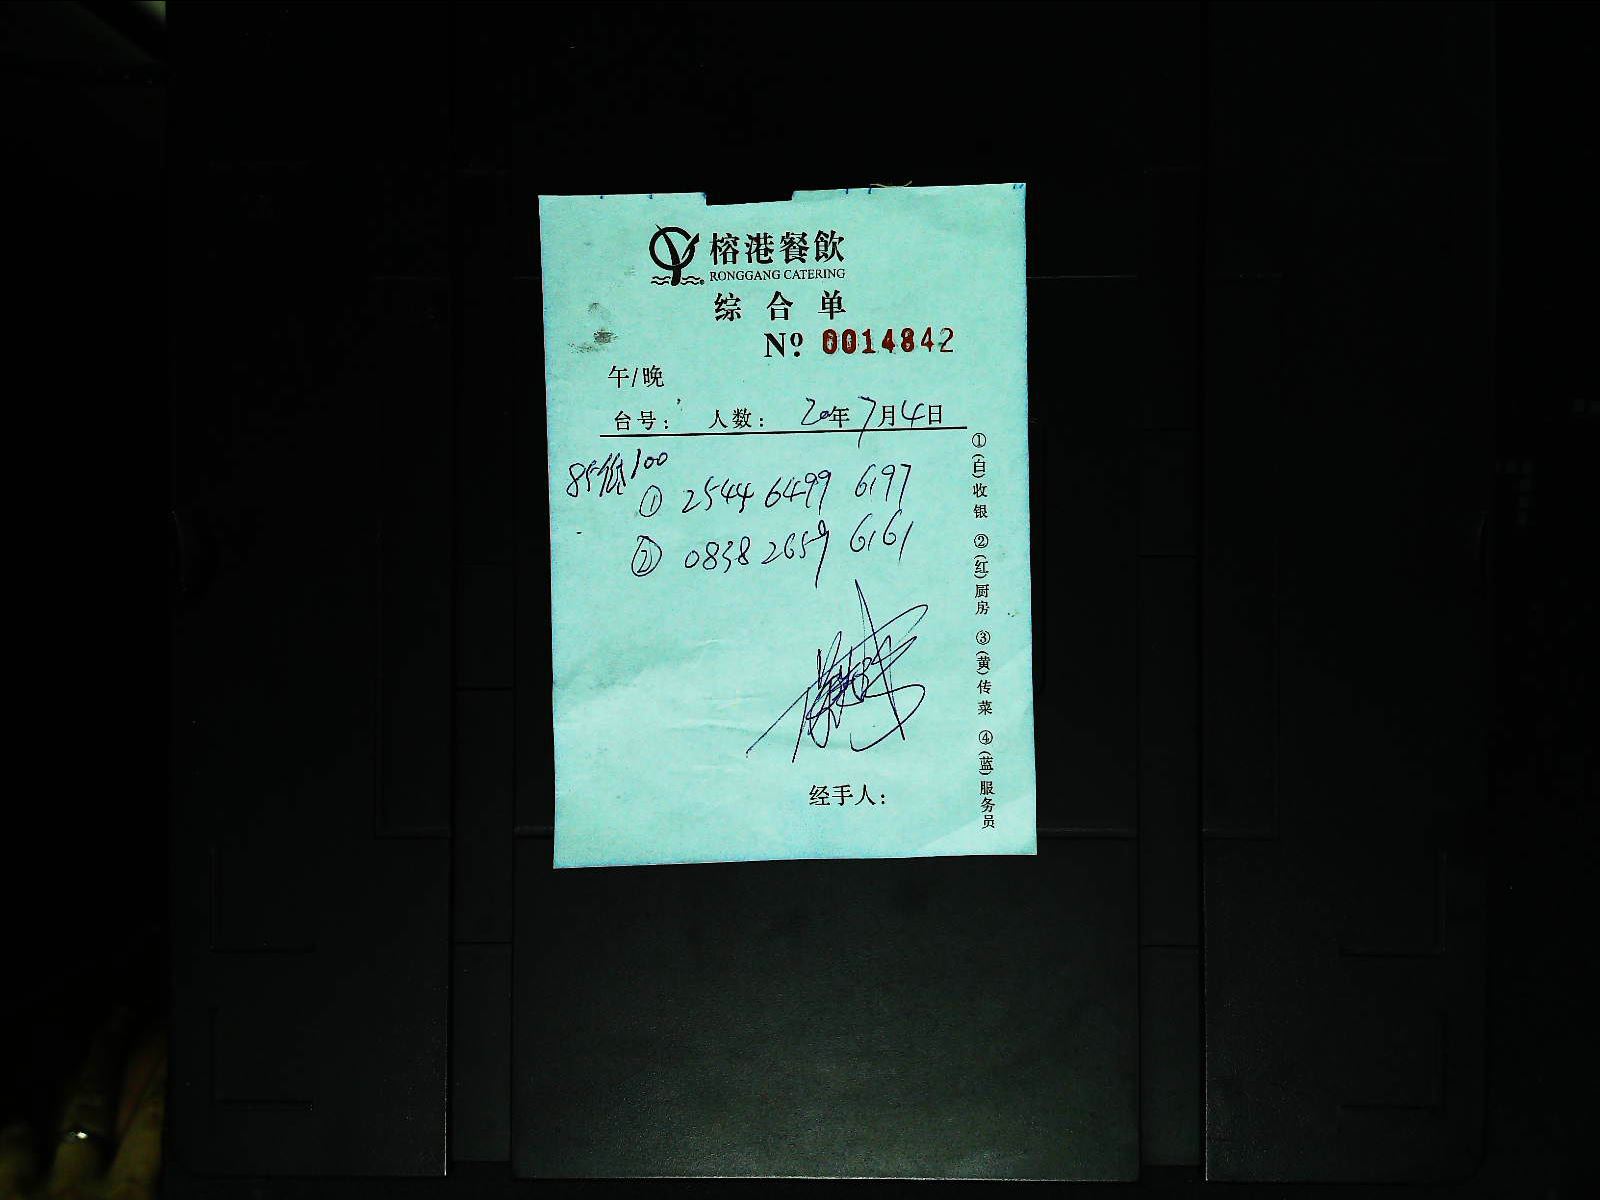 榕港餐飲
RONGGANG CATERING
综合单
Nº 0014842
午/晚
台号: 人数: 20年7月4日
85低100
① 2544 6499 6197
② 0838 2659 6161
经手人:
①(白)收银 ②(红)厨房 ③(黄)传菜 ④(蓝)服务员